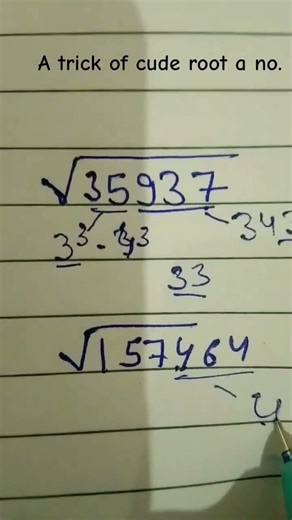 A trick of cude root a no.
√35937
3³ - 3³ 343
33
√157464
4